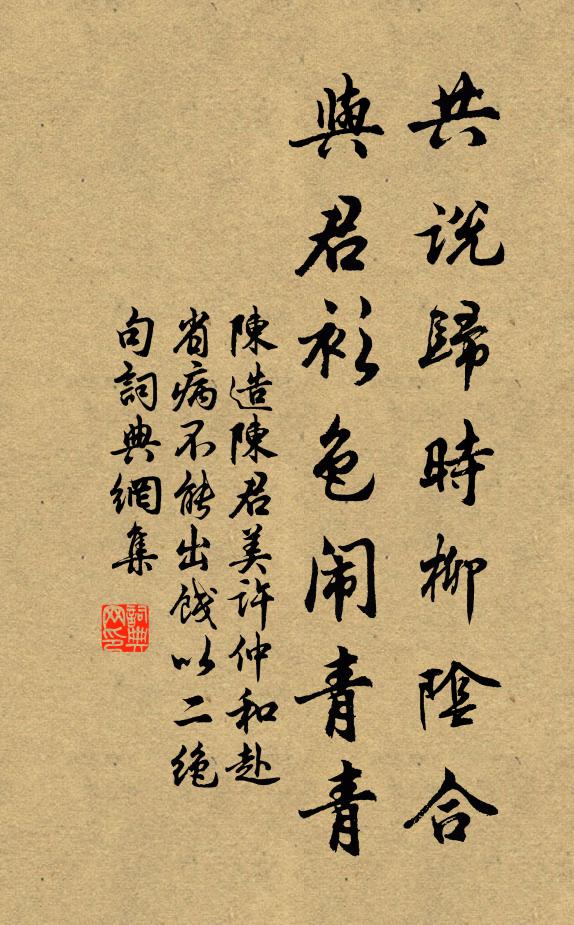 共説歸時柳陰合
與君衫色闹青青
陳造陳君美許仲和赴
省病不能出餞以二绝
句詞典網集
詞典
网印